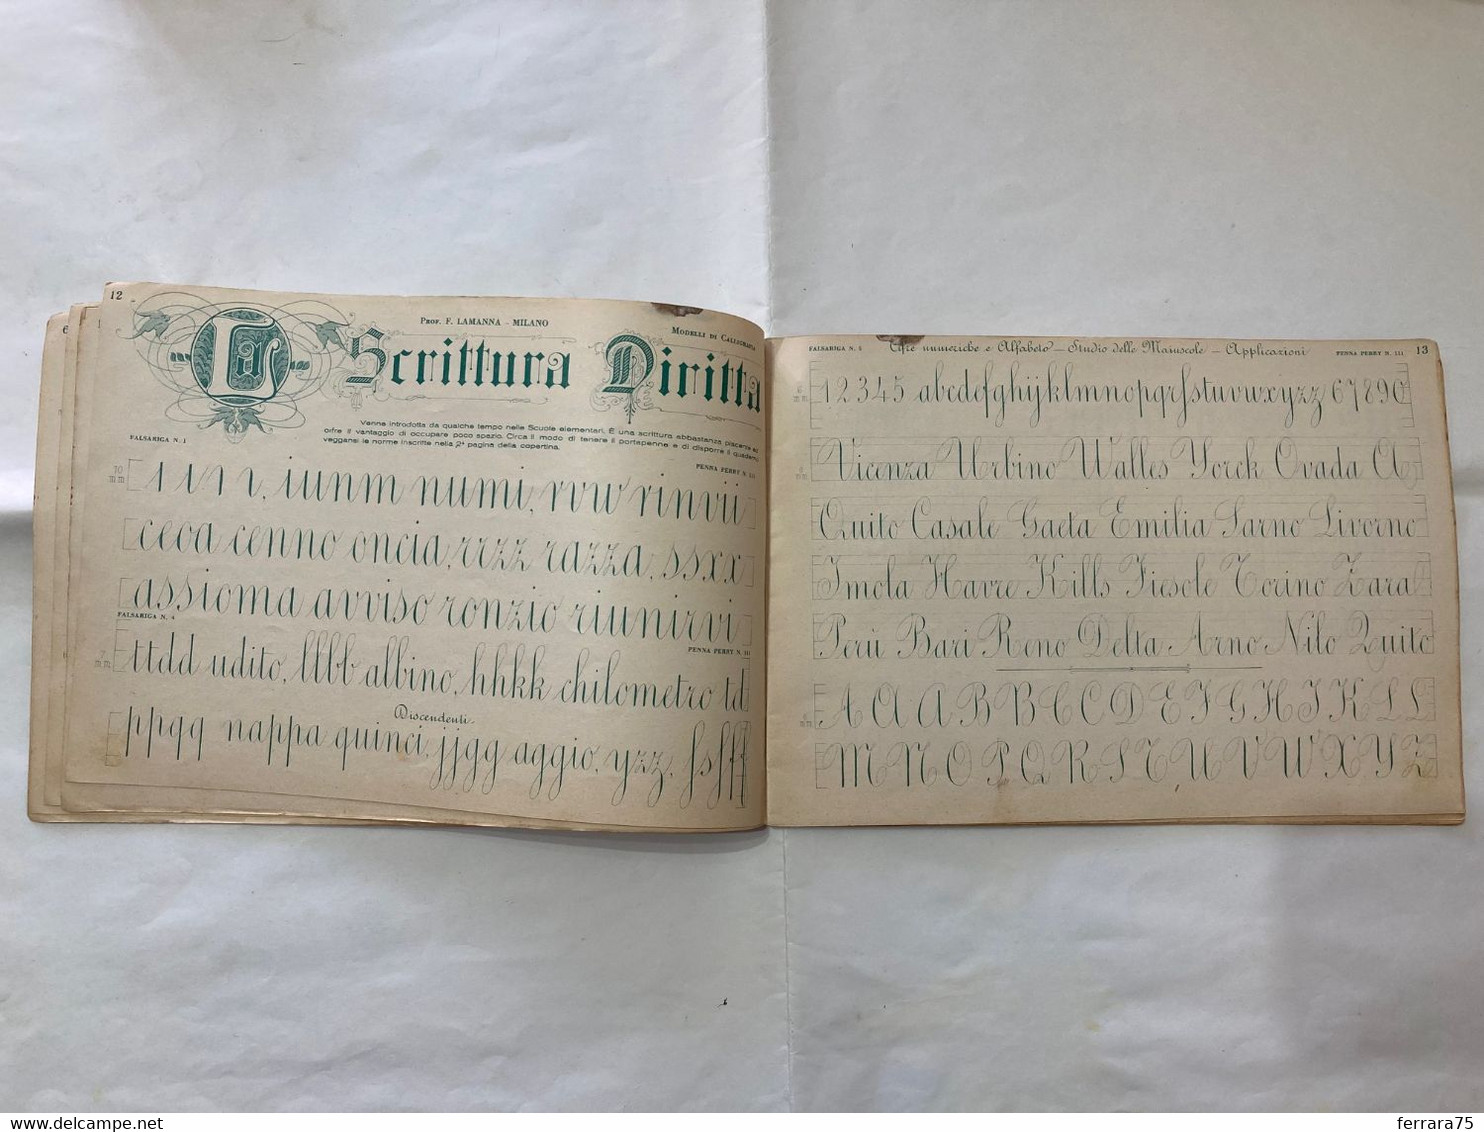 12
Prof. F. LAMANNA - MILANO
Modelli di Calligrafia
La Scrittura Diritta
Venne introdotta da qualche tempo nelle Scuole elementari. È una scrittura abbastanza piacente ed
offre il vantaggio di occupare poco spazio. Circa il modo di tenere il portapenne e di disporre il quaderno,
veggansi le norme inscritte nella 2ª pagina della copertina.
FALSARIGA N. 1
PENNA PERRY N. 111
10 mm
ı ıvı ı, iunm numi, rvw rinvii
ceoa cenno oncia, rrzz razza, ssxx
assioma avviso ronzio riunirvi
FALSARIGA N. 4
PENNA PERRY N. 111
7 mm
ttdd udito, llbb albino, hhkk chilometro td
Discendenti
ppqq nappa quinci, jjgg aggio, yzz,
FALSARIGA N. 5
Cifre numeriche e Alfabeto - Studio delle Maiuscole - Applicazioni
PENNA PERRY N. 111
13
6 mm
12345 abcdefghijklmnopqrſstuvwxyzz 67890
Vicenza Urbino Walles Yorck Ovada A
Quito Casale Gaeta Emilia Sarno Livorno
Imola Havre Kills Fiesole Torino Zara
Perù Bari Reno Delta Arno Nilo Quito
A A A B B C C D E F G H I K L L
M N O P Q R S T U V W X Y Z
ferrara75